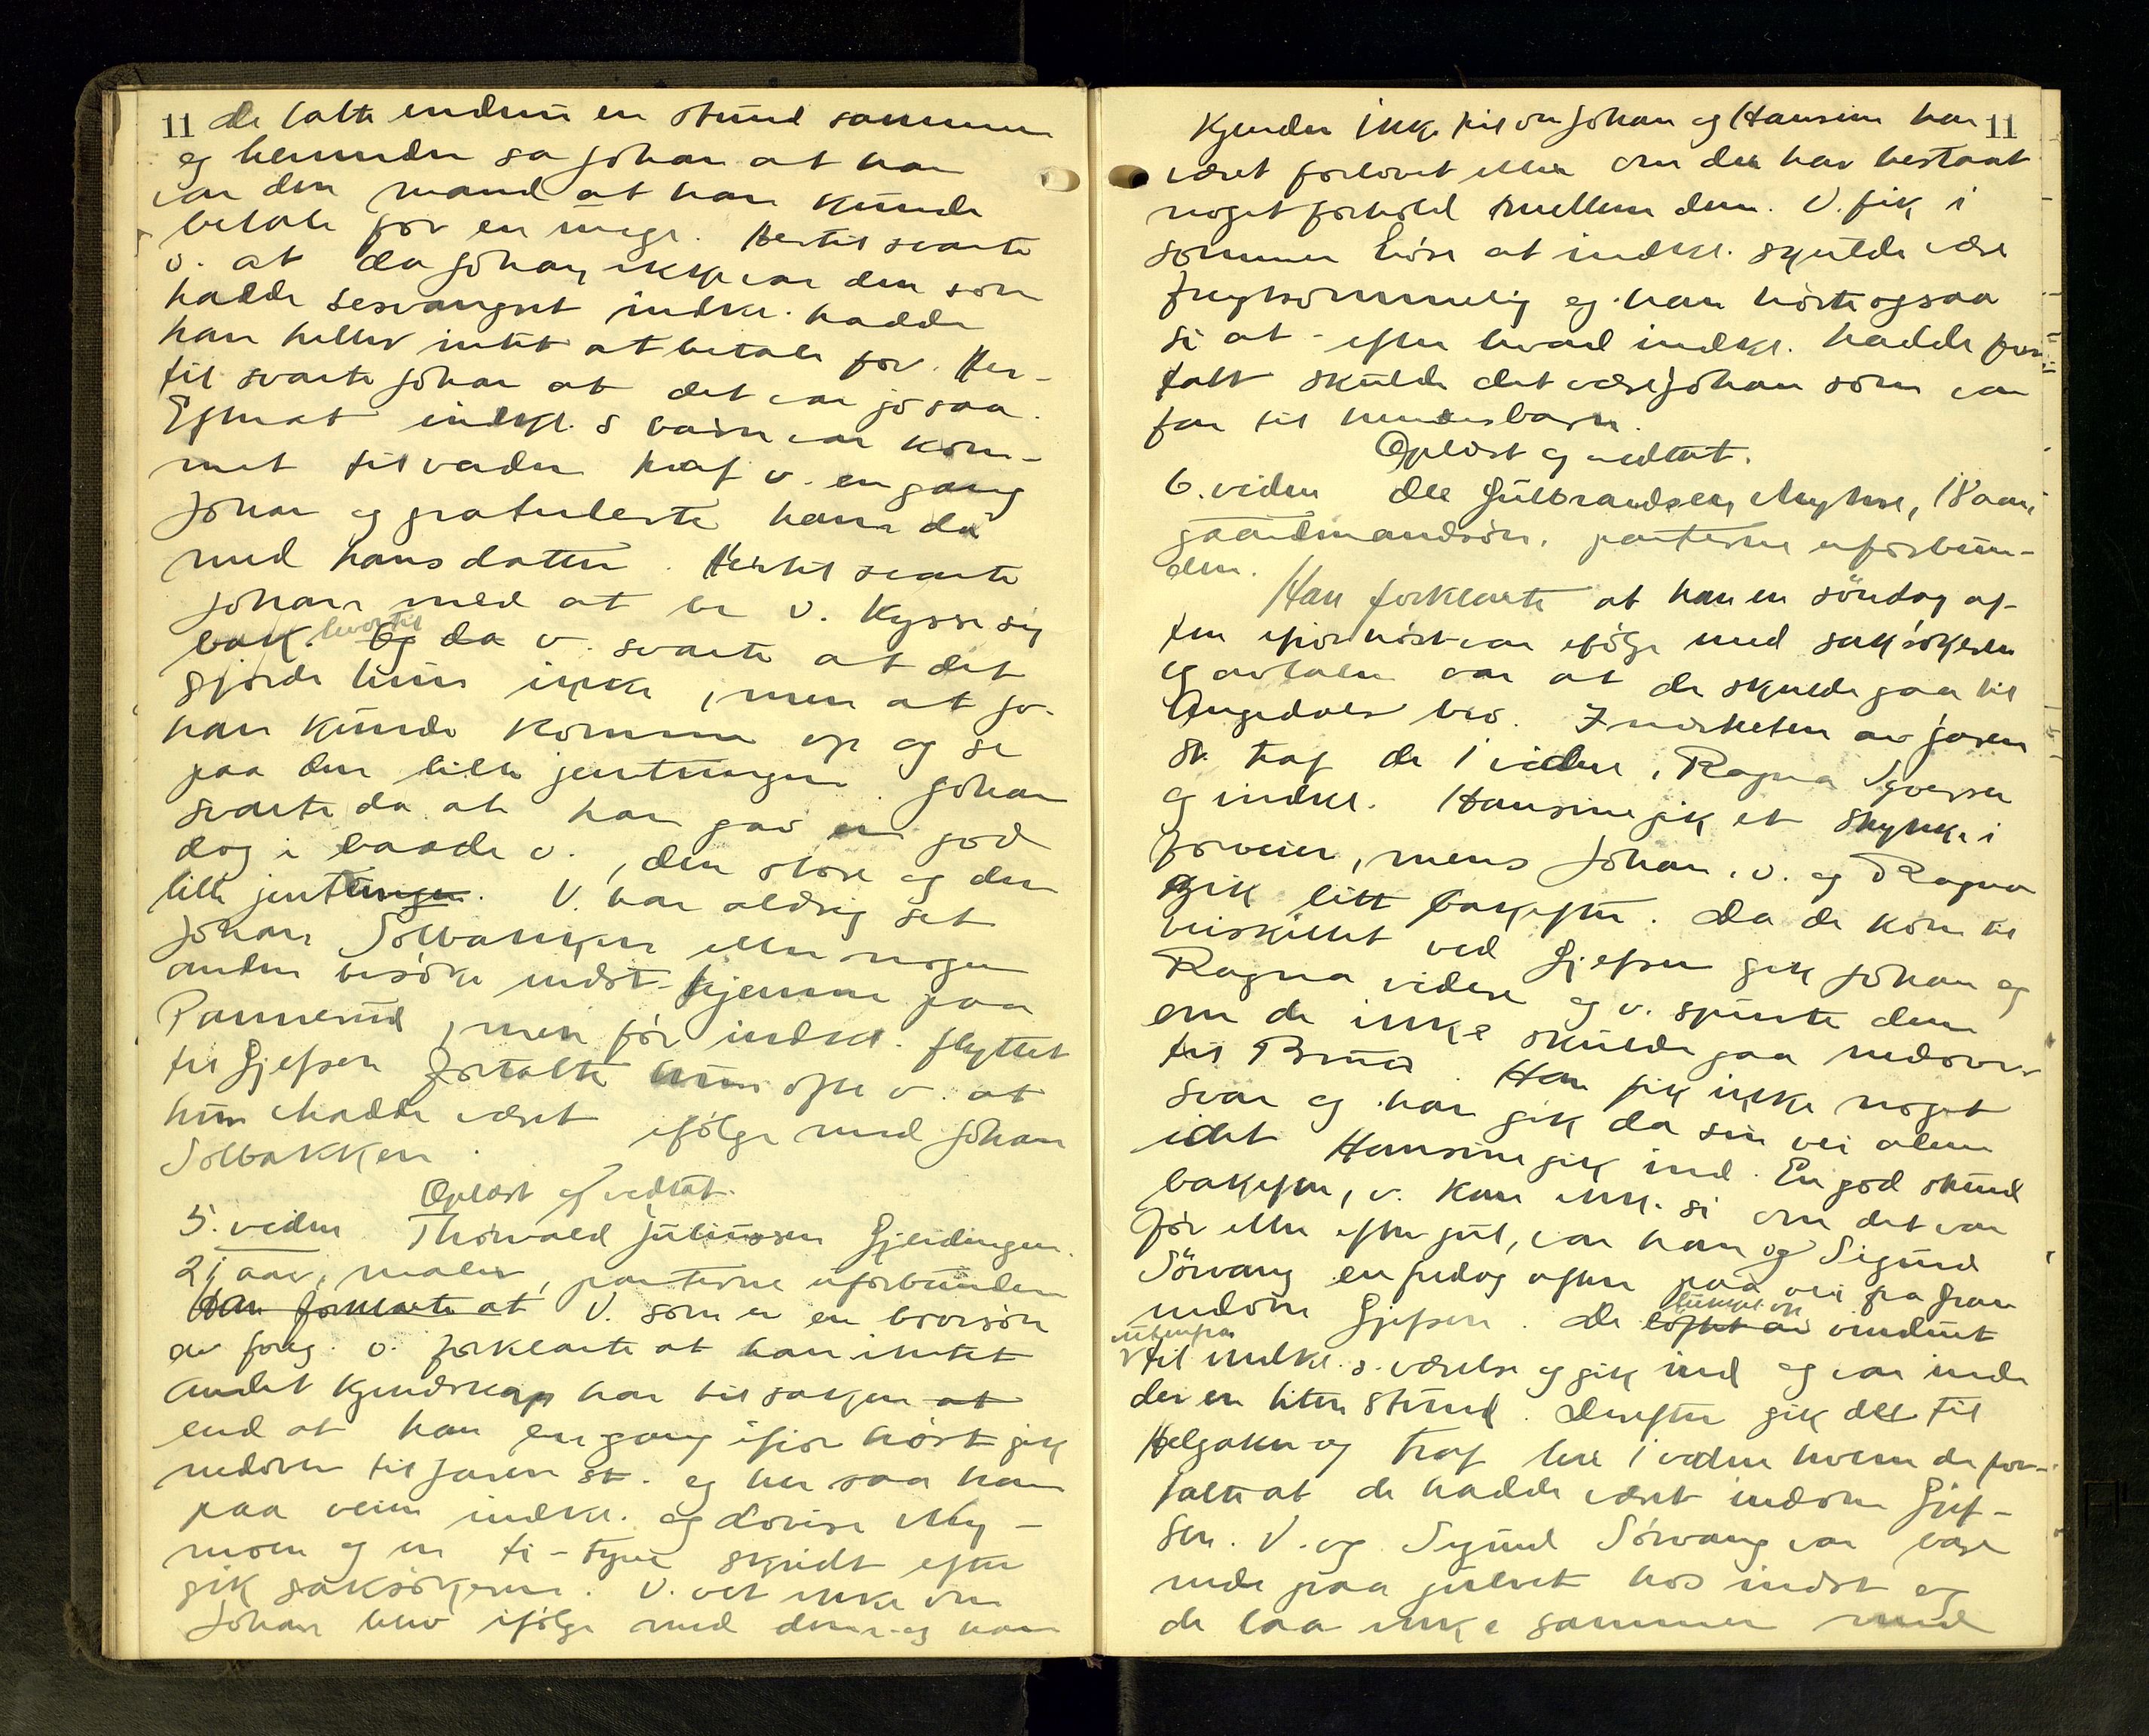 11 de talte endnu en stund sammen
og herunder sa Johan at han
var den mand at han kunde
betale for en unge. Hertil svarte
v. at da Johan ikke var den som
hadde besvangret indkl. hadde
han heller intet at betale for. Her-
til svarte Johan at det var jo saa.
Efterat indkl.s barn var kom-
met tilverden traf v. en gang
Johan og gratulerte ham da
med hans datter. Hertil svarte
Johan med at be v. kysse sig
bak. hvortil Og da v. svarte at det
gjorde hun ikke, men at Jo-
han kunde komme op og se
paa den lille jentungen. Johan
svarte da at han gav en god
dag i baade v., den store og den
lille jentungen. V. har aldrig set
Johan Solbakken eller nogen
anden besöke indst. hjemme paa
Pannerud, men för indkl. flyttet
til Gjefsen fortalte hun ofte v. at
hun hadde været ifölge med Johan
Solbakken.
Oplæst og vedtat.
5. vidne Thorvald Juliussen Gjerdingen.
21 aar, maler, parterne uforbunden
Han forklarte at V. som er en brorsön
av foreg. v. forklarte at han intet
andet kjendskap har til saken at
end at han engang ifjor höst gik
nedover til Jaren st. og her saa han
paa veien indkl. og Lovise My-
moen og en ti-tyve skridt efter
gik saksökeren. V. vet ikke om
Johan blev ifölge med dem og han
11
kjender ikke til om Johan og Hansine har
været forlovet eller om der har bestaat
noget forhold mellem dem. V. fik i
sommer höre at indkl. skulde være
frugtsommelig og han hörte ogsaa
si at - efter hvad indkl. hadde for-
talt skulde det være Johan som var
far til hendes barn.
Oplæst og vedtat.
6. vidne Ole Gulbrandsen Myhre, 18 aar,
gaardmandsön, parterne uforbun-
den.
Han forklarte at han en söndag af-
ten ifjor höst var ifölge med saksökeren
og avtalen var at de skulde gaa til
Augedals bro. I nærheten av Jaren
st. traf de 1 vidne, Ragna Syversen
og indkl. Hansine gik et stykke i
forveien, mens Johan, v. og Ragna
gik litt bakefter. Da de kom til
veiskillet ved Gjefsen gik Johan og
Ragna videre og v. spurte dem
om de ikke skulde gaa nedover
til Brua. Han fik ikke noget
svar og han gik da sin vei alene
idet Hansine gik ind. En god stund
bakefter, v. kan ikke si om det var
för eller efter jul, var han og Sigurd
Sörvang en fredag aften paa vei fra Gran
indom Gjefsen. De löftet av vinduet
utenfra
til indkl.s. værelse og gik ind og var inde
der en liten stund. Derefter gik de til
Helgaker og traf her 1 vidne hvem de for-
talte at de hadde været indom Gjef-
sen. V. og Sigurd Sörvang var bare
inde paa gulvet hos indst og
de laa ikke sammen med